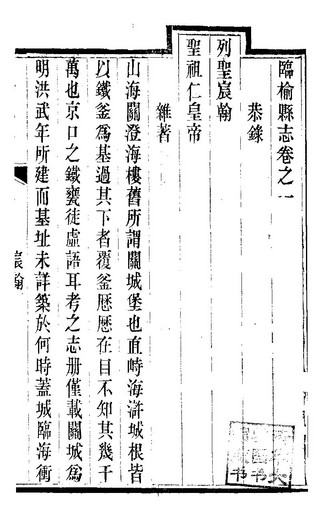 臨榆縣志卷之一
恭錄
列聖宸翰
聖祖仁皇帝
雜著
山海關澄海樓舊所謂關城堡也直峙海滸城根皆
以鐵釜為基過其下者覆釜歷歷在目不知其幾千
萬也京口之鐵甕徒虛語耳考之志册僅載關城為
明洪武年所建而基址未詳築於何時蓋城臨海衝
宸翰